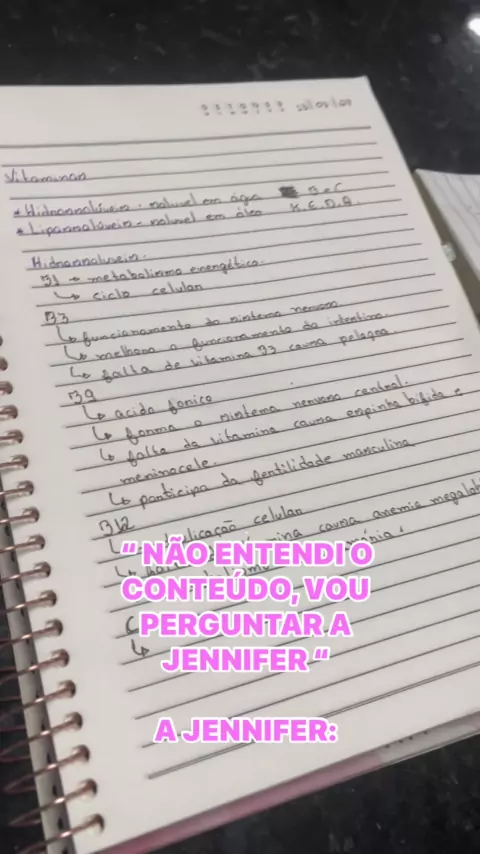 Vitaminas
* Hidrossolúveis - solúvel em água B e C
* Lipossolúveis - solúvel em óleo K.E.D.A.
Hidrossolúveis.
B1 → metabolismo energético.
↳ ciclo celular
B3
↳ funcionamento do sistema nervoso
↳ melhora o funcionamento do intestino.
↳ falta de vitamina B3 causa pelagra.
B9
↳ acido fonico
↳ forma o sistema nervoso central.
↳ falta da vitamina causa espinha bifida e
meninocele.
↳ participa da fertilidade masculina
B12
celular
causa anemia
“ NÃO ENTENDI O
CONTEÚDO, VOU
PERGUNTAR A
JENNIFER “
A JENNIFER: